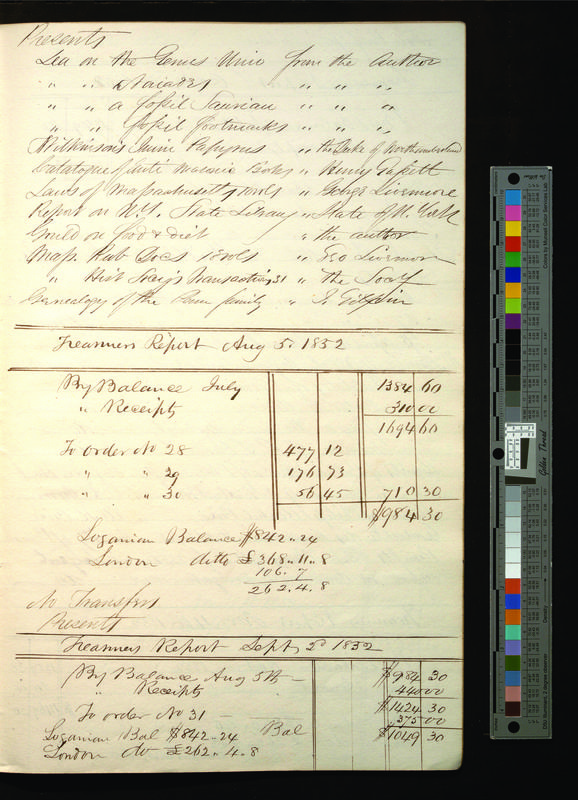 Presents
Lea on the Genus Unio from the Author
" " Naiades " " "
" " a fossil Saurian " " "
" " fossil footmarks " " "
Wilkinson's Turin Papyrus " the Duke of Northumberland
Catalogue of Anti Masonic Books " Henry
Laws of Massachusetts 7 vols " George Livermore
Report on N.Y. State Library " State of N. York
Guild on food & diet " the author
Mass. Pub Docs 18 vols " Geo Livermore
" Hist Socy's Transactions 31 " the Socy
Genealogy of the family " Gilpin
Treasurers Report Aug 5. 1852
By Balance July 1384 60
" Receipts 310 00
1694 60
To order No 28 477 12
" " 29 176 73
" " 30 56 45 710 30
$984 30
Loganian Balance $842..24
London ditto £368..11..8
106. 7
262.4.8
No Transfers
Presents
Treasurers Report Sept 2d 1852
By Balance Aug 5th — $984 30
" Receipts 440 00
$1424 30
To order No 31 — 375 00
Loganian Bal $842..24 Bal $1049 30
London do £262..4..8